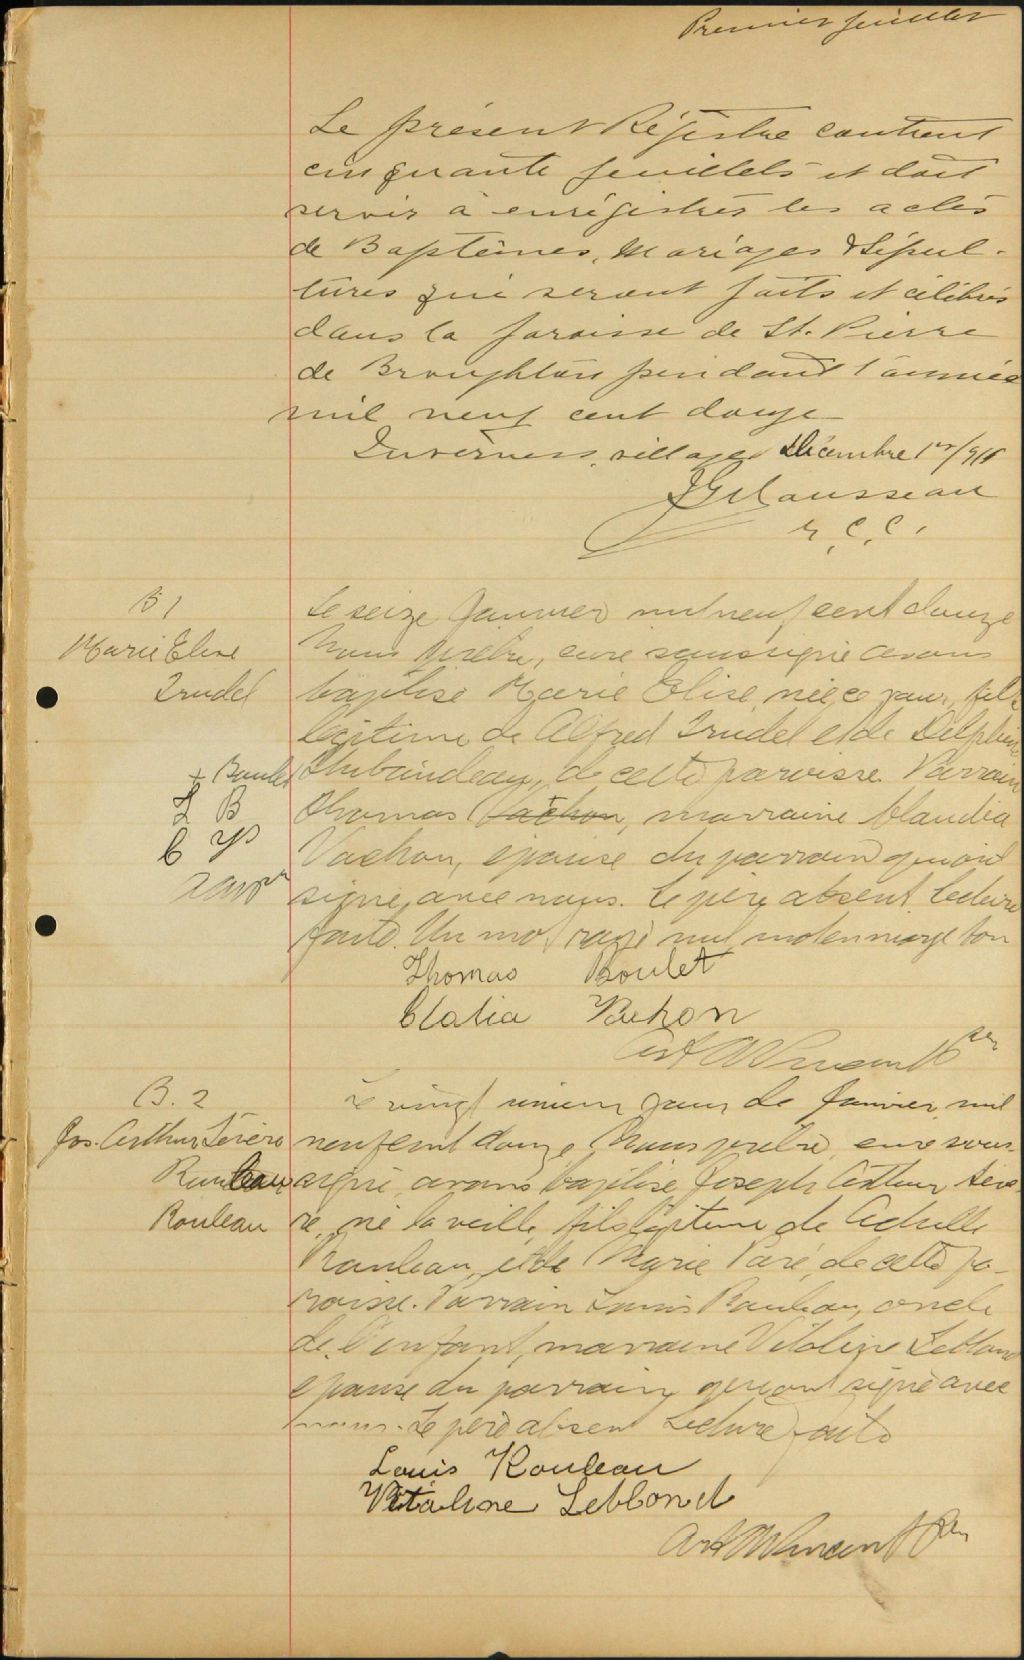 Premier feuillet
Le présent Régistre contient
cinquante feuillets et doit
servir à enrégistrer les actes
de Baptêmes, Mariages & Sépul-
tures qui seront faits et célébrés
dans la paroisse de St. Pierre
de Broughton pendant l'année
mil neuf cent douze
Inverness, village, Décembre 1er/911
Rousseau
G. C. C.
B 1
Marie Elise
Trudel
Le seize Janvier mil neuf cent douze
Nous prêtre, curé soussigné avons
baptisé Marie Elise, née ce jour, fille
légitime de Alfred Trudel et de Delphine
Thibaudeau, de cette paroisse. Parrain
+ Boulet
T B
C V
Thomas Vachon +, marraine Claudia
Vachon, épouse du parrain qui ont
signé avec nous. Le père absent. Lecture
faite. Un mot rayé nul mot en marge bon
Thomas Boulet
Clatia Vachon
Art Vincent Ptre
B. 2
Jos. Arthur Sévère
Rouleau
Rouleau
Le vingt unième jour de Janvier mil
neuf cent douze Nous prêtre, curé sous-
signé, avons baptisé Joseph Arthur Sévè-
re, né la veille, fils légitime de Achille
Rouleau, et de Marie Paré, de cette pa-
roisse. Parrain Louis Rouleau, oncle
de l'enfant, marraine Vitaline Leblond
épouse du parrain qui ont signé avec
nous. Le père absent Lecture faite
Louis Rouleau
Vitaline Leblond
Art Vincent Ptre